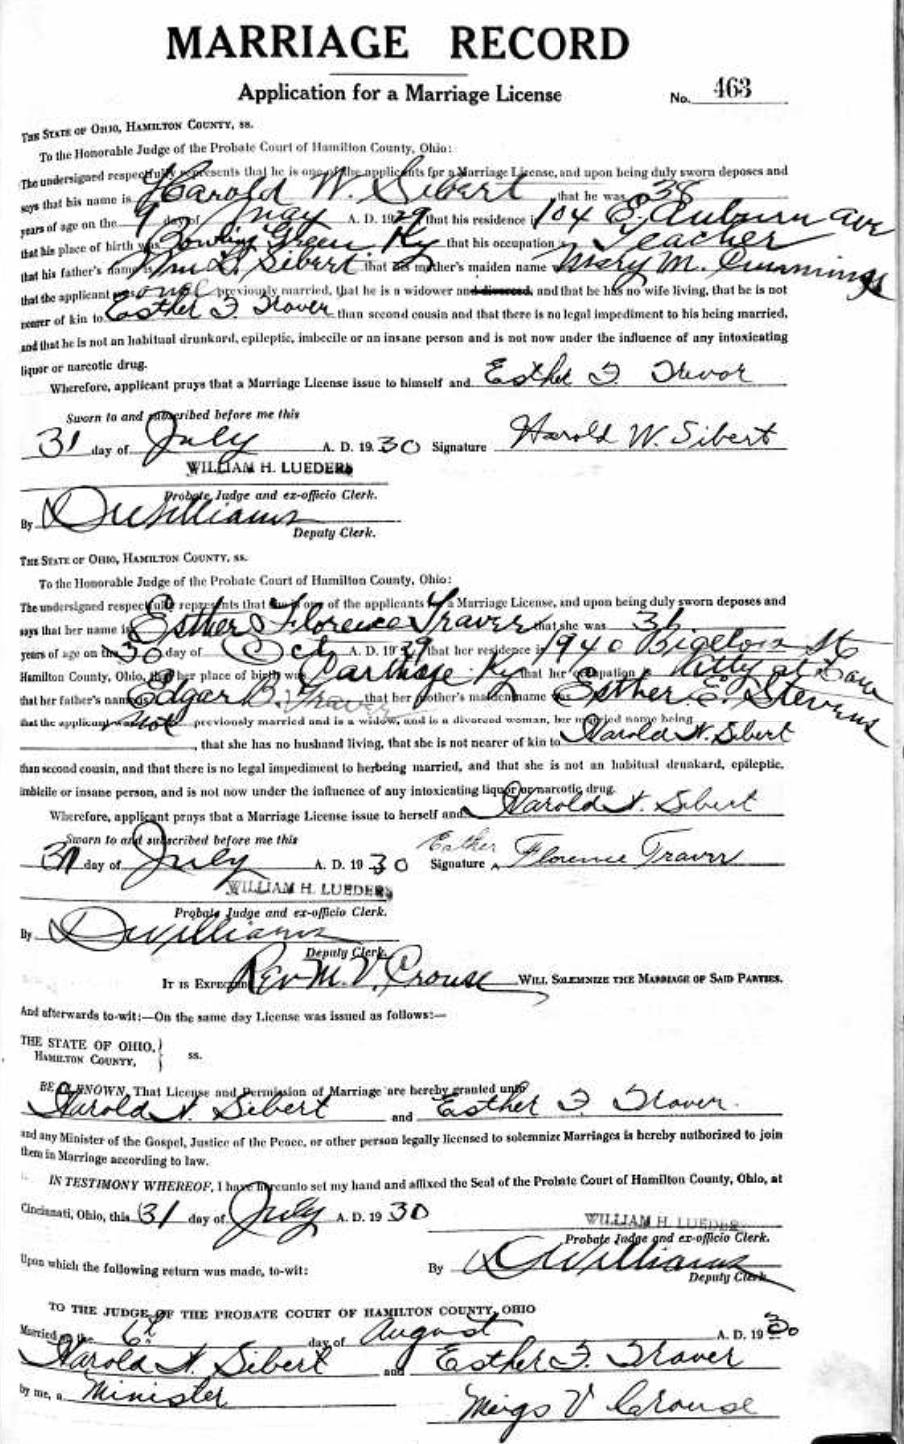 MARRIAGE RECORD
Application for a Marriage License
No. 463
THE STATE OF OHIO, HAMILTON COUNTY, ss.
To the Honorable Judge of the Probate Court of Hamilton County, Ohio:
The undersigned respectfully represents that he is one of the applicants for a Marriage License, and upon being duly sworn deposes and
says that his name is Harold W. Sibert that he was 38
years of age on the 9 day of May A. D. 1929 that his residence is 104 E. Auburn ave
that his place of birth was Bowling Green Ky that his occupation is Teacher
that his father's name is Wm L. Sibert that his mother's maiden name was Mary M. Cummings
that the applicant was once previously married, that he is a widower and divorced, and that he has no wife living, that he is not
nearer of kin to Esther F. Traver than second cousin and that there is no legal impediment to his being married,
and that he is not an habitual drunkard, epileptic, imbecile or an insane person and is not now under the influence of any intoxicating
liquor or narcotic drug.
Wherefore, applicant prays that a Marriage License issue to himself and Esther F. Trevor
Sworn to and subscribed before me this
31 day of July A. D. 1930 Signature Harold W. Sibert
WILLIAM H. LUEDERS
Probate Judge and ex-officio Clerk.
By DWilliams
Deputy Clerk.
THE STATE OF OHIO, HAMILTON COUNTY, ss.
To the Honorable Judge of the Probate Court of Hamilton County, Ohio:
The undersigned respectfully represents that she is one of the applicants for a Marriage License, and upon being duly sworn deposes and
says that her name is Esther Florence Traver that she was 36
years of age on the 30 day of Oct A. D. 1929 that her residence is 1940 Bigelow St
Hamilton County, Ohio, that her place of birth was Carthage Ky that her occupation is Atty at Law
that her father's name is Edgar B. Traver that her mother's maiden name was Esther E. Stevens
that the applicant was not previously married and is a widow, and is a divorced woman, her married name being
, that she has no husband living, that she is not nearer of kin to Harold W. Sibert
than second cousin, and that there is no legal impediment to herbeing married, and that she is not an habitual drunkard, epileptic,
imbicile or insane person, and is not now under the influence of any intoxicating liquor or narcotic drug.
Wherefore, applicant prays that a Marriage License issue to herself and Harold W. Sibert
Sworn to and subscribed before me this
31 day of July A. D. 1930 Signature Esther Florence Traver
WILLIAM H. LUEDERS
Probate Judge and ex-officio Clerk.
By DWilliams
Deputy Clerk.
IT IS EXPECTED Rev M. V. Crouse WILL SOLEMNIZE THE MARRIAGE OF SAID PARTIES.
And afterwards to-wit:—On the same day License was issued as follows:—
THE STATE OF OHIO,
HAMILTON COUNTY, ss.
BE IT KNOWN, That License and Permission of Marriage are hereby granted unto
Harold W. Sibert and Esther F. Traver
and any Minister of the Gospel, Justice of the Peace, or other person legally licensed to solemnize Marriages is hereby authorized to join
them in Marriage according to law.
IN TESTIMONY WHEREOF, I have hereunto set my hand and affixed the Seal of the Probate Court of Hamilton County, Ohio, at
Cincinnati, Ohio, this 31 day of July A. D. 1930
WILLIAM H. LUEDERS
Probate Judge and ex-officio Clerk.
Upon which the following return was made, to-wit: By DWilliams
Deputy Clerk
TO THE JUDGE OF THE PROBATE COURT OF HAMILTON COUNTY, OHIO
Married on the 6th day of August A. D. 1930
Harold W. Sibert and Esther F. Traver
by me, a Minister Meigs V Crouse